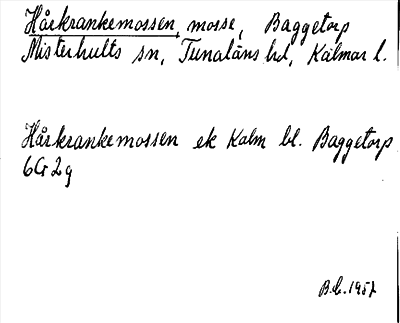 Hårkrankemossen, mosse, Baggetorp
Misterhults sn, Tunaläns hd, Kalmar l.
Hårkrankemossen ek Kalm bl. Baggetorp
6G2g
1957